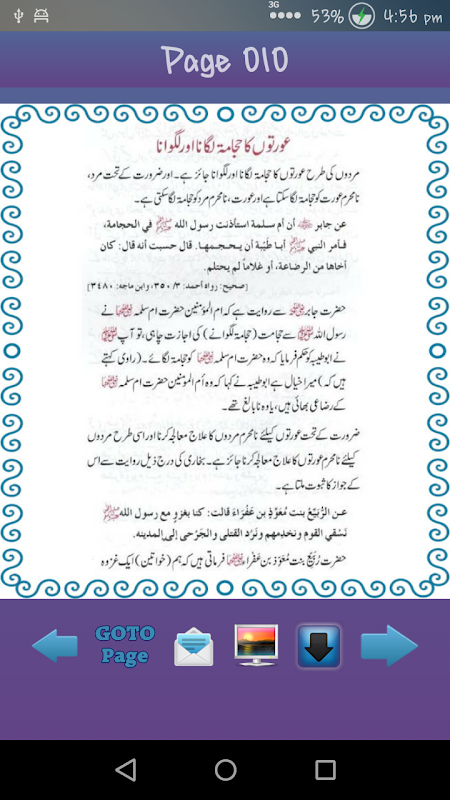 3G
53%
4:56 pm
Page 010
عورتوں کا حجامۃ لگانا اور لگوانا
مردوں کی طرح عورتوں کا حجامۃ لگانا اور لگوانا جائز ہے۔ اور ضرورت کے تحت مرد،
نامحرم عورت کو حجامۃ لگا سکتا ہے اور عورت، نامحرم مرد کو حجامۃ لگا سکتی ہے۔
عن جابر ﷺ أن أم سلمة استأذنت رسول الله ﷺ في الحجامة،
فأمر النبي ﷺ أبا طَيْبَة أن يـحـجمـهـا. قال: حسبت أنه قال: كان
أخاها من الرضاعة، أو غلاماً لم يحتلم.
[صحیح: رواہ احمد: ۳/۳۵۰، وابن ماجه: ۳۴۸۰]
حضرت جابر سے روایت ہے کہ ام المؤمنین حضرت ام سلمہ نے
رسول اللہ ﷺ سے حجامت (حجامۃ لگوانے) کی اجازت چاہی، تو آپ ﷺ
نے ابوطیبہ کو حکم فرمایا کہ وہ حضرت ام سلمہ کو حجامۃ لگائے۔ (راوی کہتے
ہیں کہ) میرا خیال ہے ابوطیبہ نے کہا کہ وہ أم المؤمنین حضرت ام سلمہ
کے رضاعی بھائی ہیں، یا وہ نابالغ تھے۔
ضرورت کے تحت عورتوں کیلئے نامحرم مردوں کا علاج معالجہ کرنا اور اسی طرح مردوں
کیلئے نامحرم عورتوں کا علاج معالجہ کرنا جائز ہے۔ بخاری کی درج ذیل روایت سے اس
کے جواز کا ثبوت ملتا ہے۔
عـن الرُّبَيِّعُ بنت مُعَوِّذ بن عَفْرَاءَ قالت: كنا نغزو مع رسول الله ﷺ
نَسْقي القوم ونخدِمهم ونَرُد القتلى والجَرْحى إلى المدينه.
حضرت رُبَیِّع بنت مُعَوِّذ بن عَفراء فرماتی ہیں کہ ہم (خواتین) ایک غزوہ
GOTO
Page